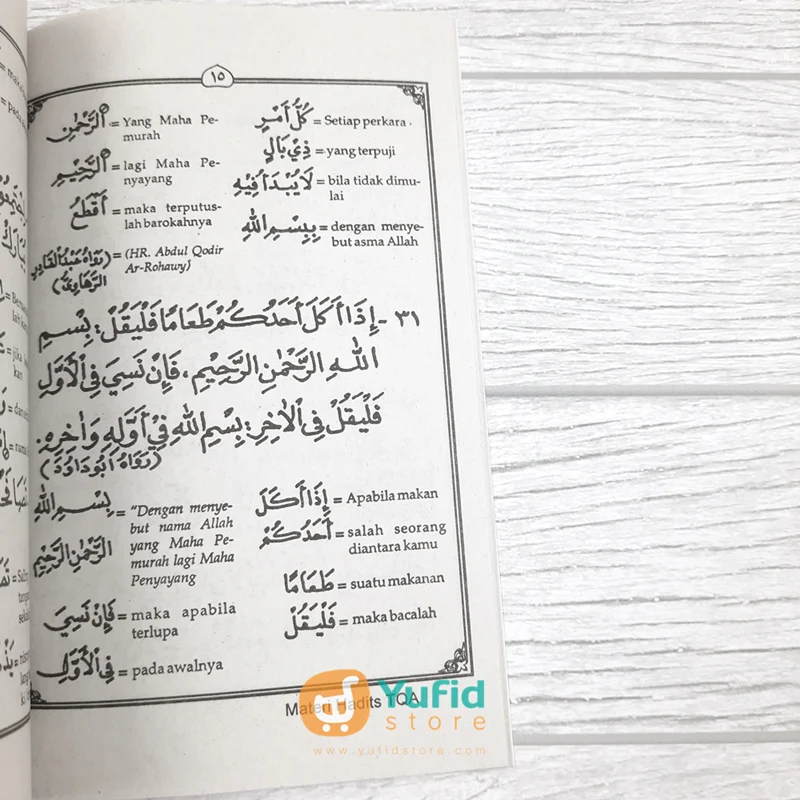 ١٥
كُلُّ أَمْرٍ = Setiap perkara
ذِيْ بَالٍ = yang terpuji
لَا يُبْدَأُ فِيْهِ = bila tidak dimu-
lai
بِبِسْمِ اللهِ = dengan menye-
but asma Allah
الرَّحْمٰنِ = Yang Maha Pe-
murah
الرَّحِيْمِ = lagi Maha Pe-
nyayang
أَقْطَعُ = maka terputus-
lah barokahnya
(رَوَاهُ عَبْدُ الْقَادِرِ = (HR. Abdul Qodir
الرَّهَاوِيُّ) Ar-Rohawy)
٣١- إِذَا أَكَلَ أَحَدُكُمْ طَعَامًا فَلْيَقُلْ: بِسْمِ
اللهِ الرَّحْمٰنِ الرَّحِيْمِ، فَإِنْ نَسِيَ فِي الْأَوَّلِ
فَلْيَقُلْ فِي الْاٰخِرِ: بِسْمِ اللهِ فِيْ أَوَّلِهِ وَاٰخِرِهِ.
(رَوَاهُ اَبُوْدَاوُدَ)
إِذَا أَكَلَ = Apabila makan
أَحَدُكُمْ = salah seorang
diantara kamu
طَعَامًا = suatu makanan
فَلْيَقُلْ = maka bacalah
بِسْمِ اللهِ = "Dengan menye-
but nama Allah
الرَّحْمٰنِ الرَّحِيْمِ yang Maha Pe-
murah lagi Maha
Penyayang
فَإِنْ نَسِيَ = maka apabila
terlupa
فِي الْأَوَّلِ = pada awalnya
Materi Hadits TQA
Yufid
store
www.yufidstore.com